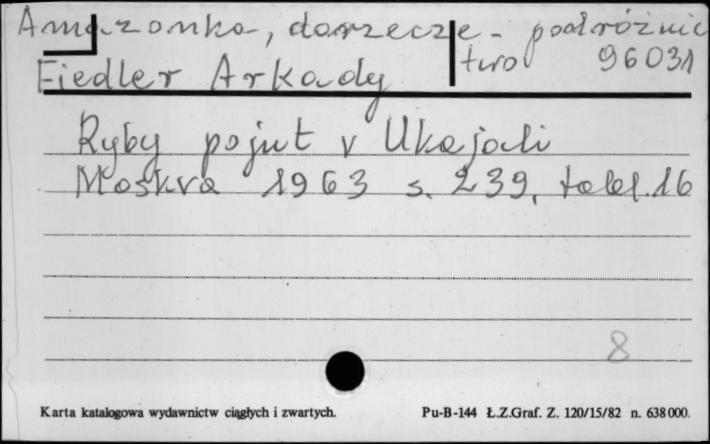 Amazonka, dorzecze - podróżnic
two 96031
Fiedler Arkady
Ryby pojut v Ukajali
Moskva 1963 s. 239, tabl. 16
8
Karta katalogowa wydawnictw ciągłych i zwartych.
Pu-B-144 Ł.Z.Graf. Z. 120/15/82 n. 638000.